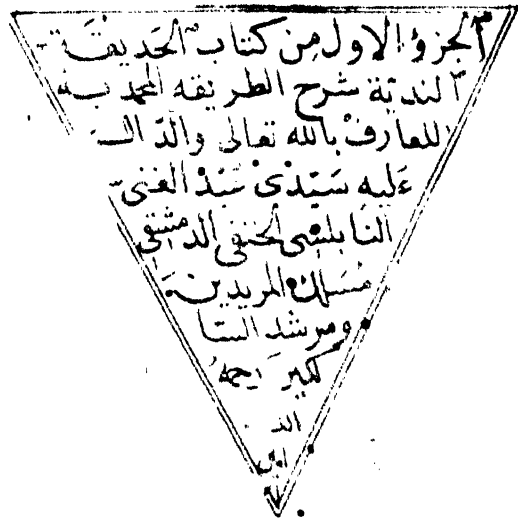 الجزؤ الاول من كتاب الحديقة
الندية شرح الطريقه المحمديه
للعارف بالله تعالى والدال
عليه سيدى عبد الغنى
النابلسى الحنفى الدمشقى
مسلك المريدين
ومرشد السا
لكين رحمه
الله
امين